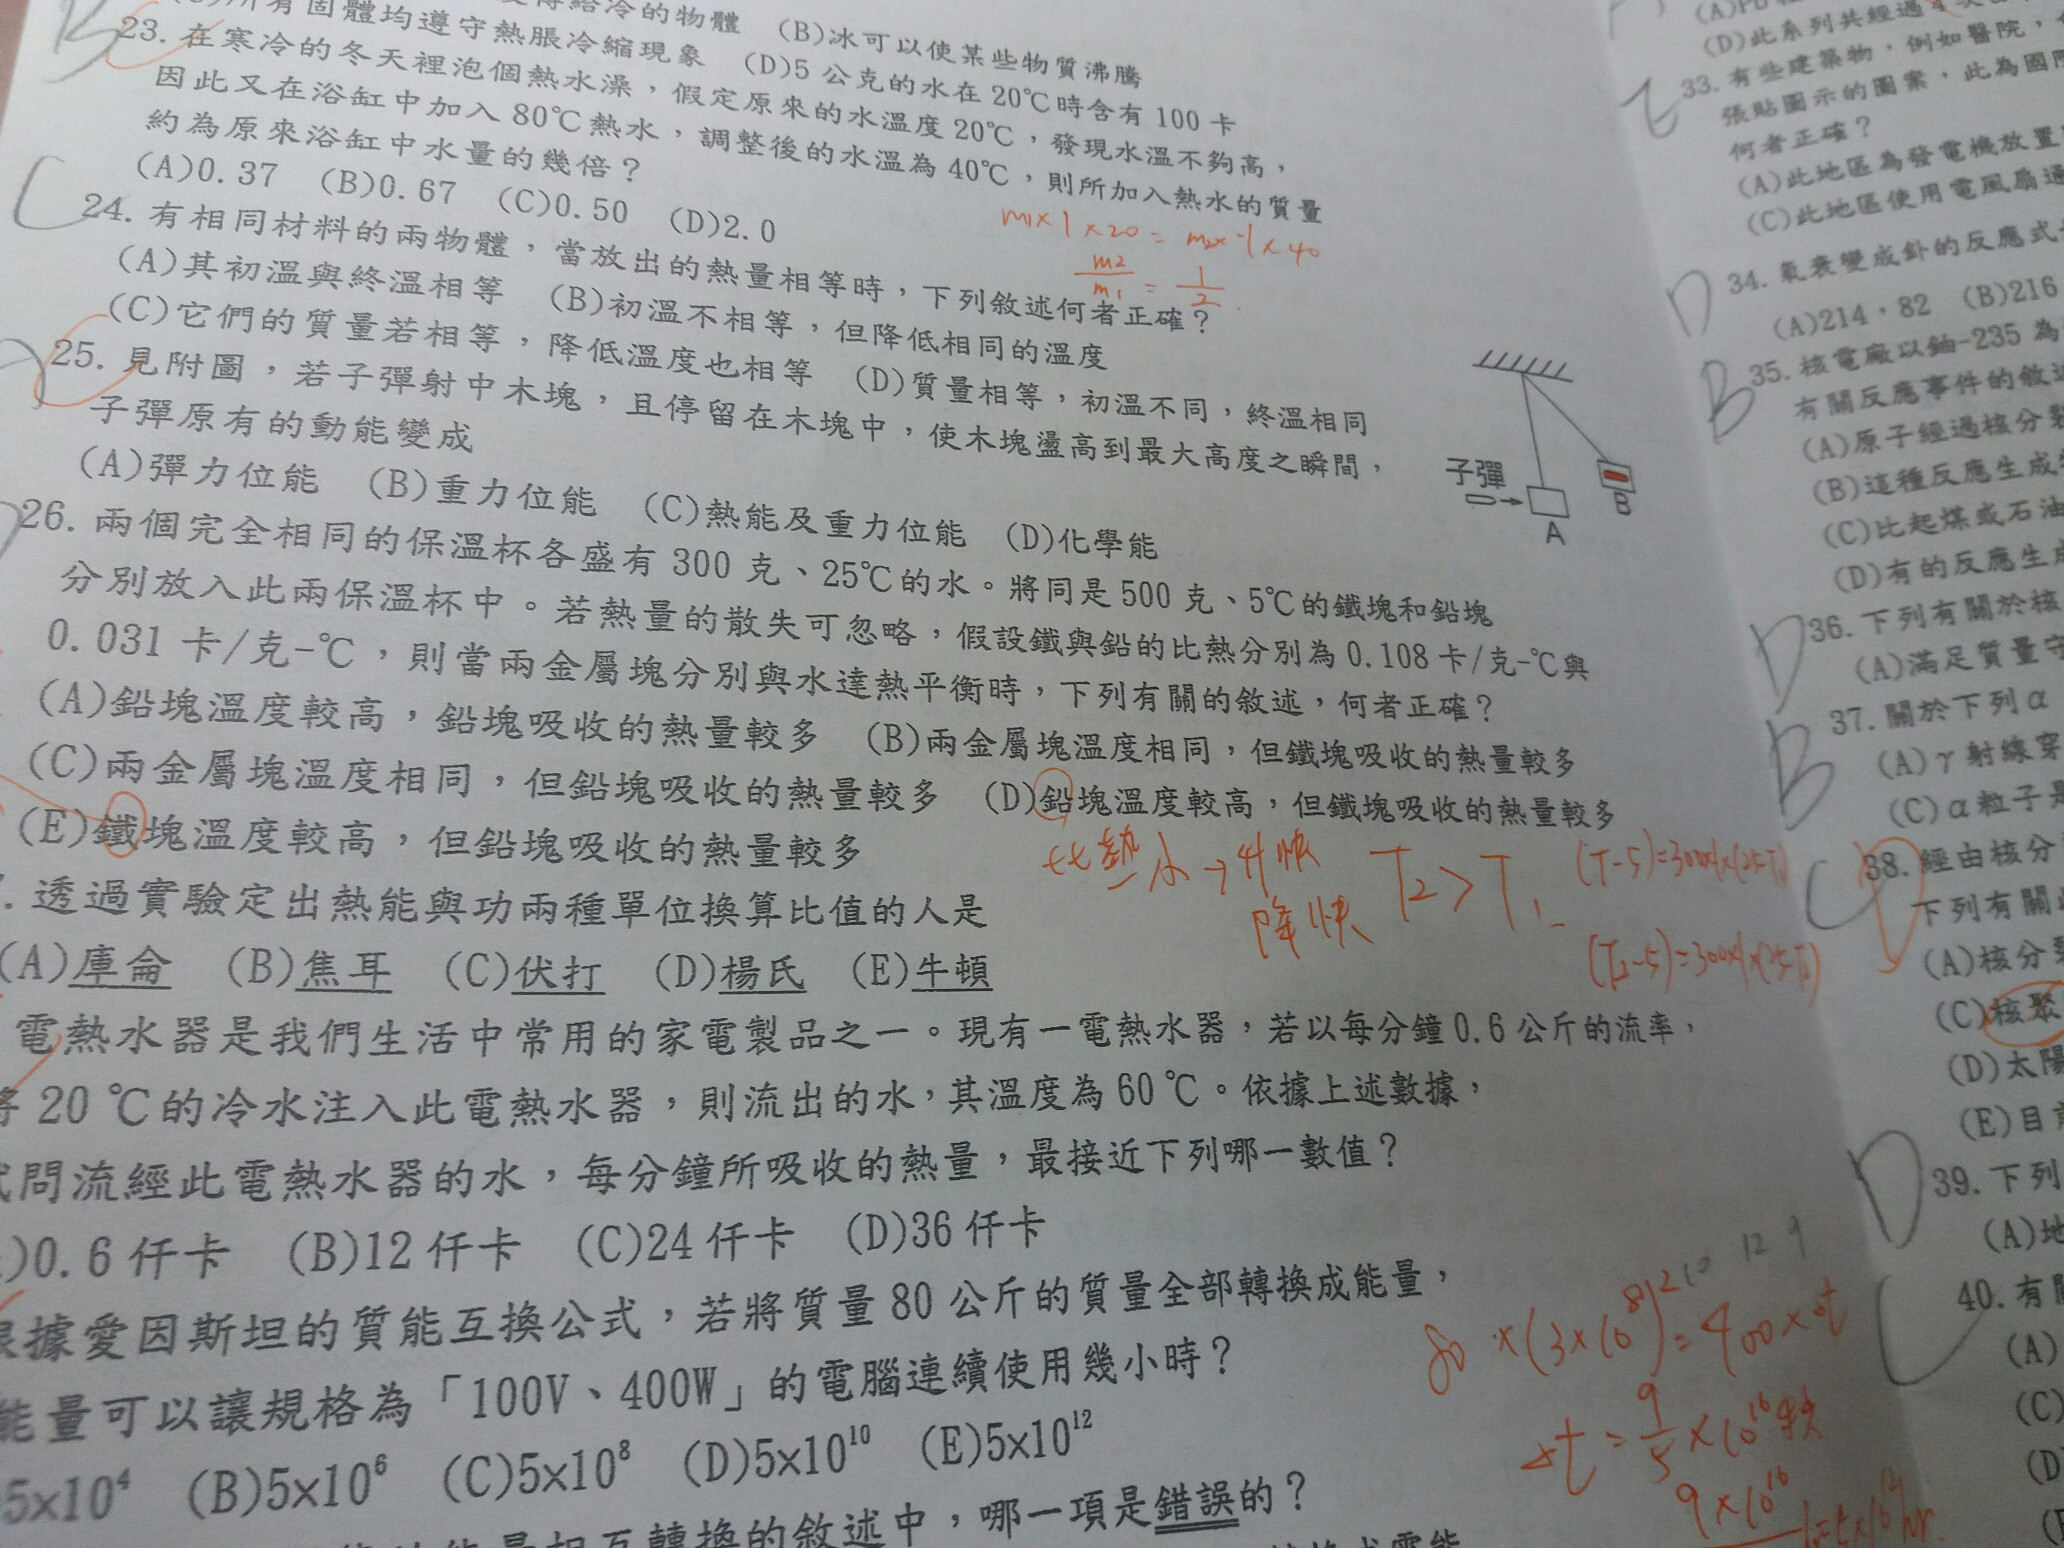 所有固體均遵守熱脹冷縮現象 (D)5 公克的水在 20℃時含有 100 卡
給冷的物體 (B)冰可以使某些物質沸騰
23. 在寒冷的冬天裡泡個熱水澡，假定原來的水溫度 20℃，發現水溫不夠高，
因此又在浴缸中加入 80℃熱水，調整後的水溫為 40℃，則所加入熱水的質量
約為原來浴缸中水量的幾倍？
(A)0.37 (B)0.67 (C)0.50 (D)2.0
m₁×1×20= m₂×1×40
m2/m1 = 1/2
C
24. 有相同材料的兩物體，當放出的熱量相等時，下列敘述何者正確？
(A)其初溫與終溫相等 (B)初溫不相等，但降低相同的溫度
(C)它們的質量若相等，降低溫度也相等 (D)質量相等，初溫不同，終溫相同
25. 見附圖，若子彈射中木塊，且停留在木塊中，使木塊盪高到最大高度之瞬間，
子彈原有的動能變成
(A)彈力位能 (B)重力位能 (C)熱能及重力位能 (D)化學能
子彈
A
B
26. 兩個完全相同的保溫杯各盛有 300 克、25℃的水。將同是 500 克、5℃的鐵塊和鉛塊
分別放入此兩保溫杯中。若熱量的散失可忽略，假設鐵與鉛的比熱分別為 0.108 卡/克-℃與
0.031 卡/克-℃，則當兩金屬塊分別與水達熱平衡時，下列有關的敘述，何者正確？
(A)鉛塊溫度較高，鉛塊吸收的熱量較多 (B)兩金屬塊溫度相同，但鐵塊吸收的熱量較多
(C)兩金屬塊溫度相同，但鉛塊吸收的熱量較多 (D)鉛塊溫度較高，但鐵塊吸收的熱量較多
(E)鐵塊溫度較高，但鉛塊吸收的熱量較多
比熱小→升快
降快
T2>T1
. 透過實驗定出熱能與功兩種單位換算比值的人是
(A)庫侖 (B)焦耳 (C)伏打 (D)楊氏 (E)牛頓
電熱水器是我們生活中常用的家電製品之一。現有一電熱水器，若以每分鐘 0.6 公斤的流率，
將 20 ℃的冷水注入此電熱水器，則流出的水，其溫度為 60 ℃。依據上述數據，
試問流經此電熱水器的水，每分鐘所吸收的熱量，最接近下列哪一數值？
)0.6 仟卡 (B)12 仟卡 (C)24 仟卡 (D)36 仟卡
根據愛因斯坦的質能互換公式，若將質量 80 公斤的質量全部轉換成能量，
能量可以讓規格為「100V、400W」的電腦連續使用幾小時？
5x10⁴ (B)5x10⁶ (C)5x10⁸ (D)5x10¹⁰ (E)5x10¹²
80 ×(3×10⁸)²=400×Δt
Δt = 9/5 ×10¹⁶秒
哪一項是錯誤的？
(D)此系列共經過
33. 有些建築物，例如醫院，
張貼圖示的圖案，此為國
何者正確？
(A)此地區為發電機放置
(C)此地區使用電風扇通
D
34. 氡衰變成釙的反應式
(A)214，82 (B)216
B
35. 核電廠以鈾-235 為
有關反應事件的敘
(A)原子經過核分裂
(B)這種反應生成
(C)比起煤或石油
(D)有的反應生成
D
36. 下列有關於核
(A)滿足質量守
B
37. 關於下列 α
(A)γ 射線穿
(C)α 粒子是
C
38. 經由核分
下列有關
(A)核分裂
(C)核聚
(D)太陽
(E)目前
D
39. 下列
(A)地
C
40. 有關
(A)
(C)
(D)